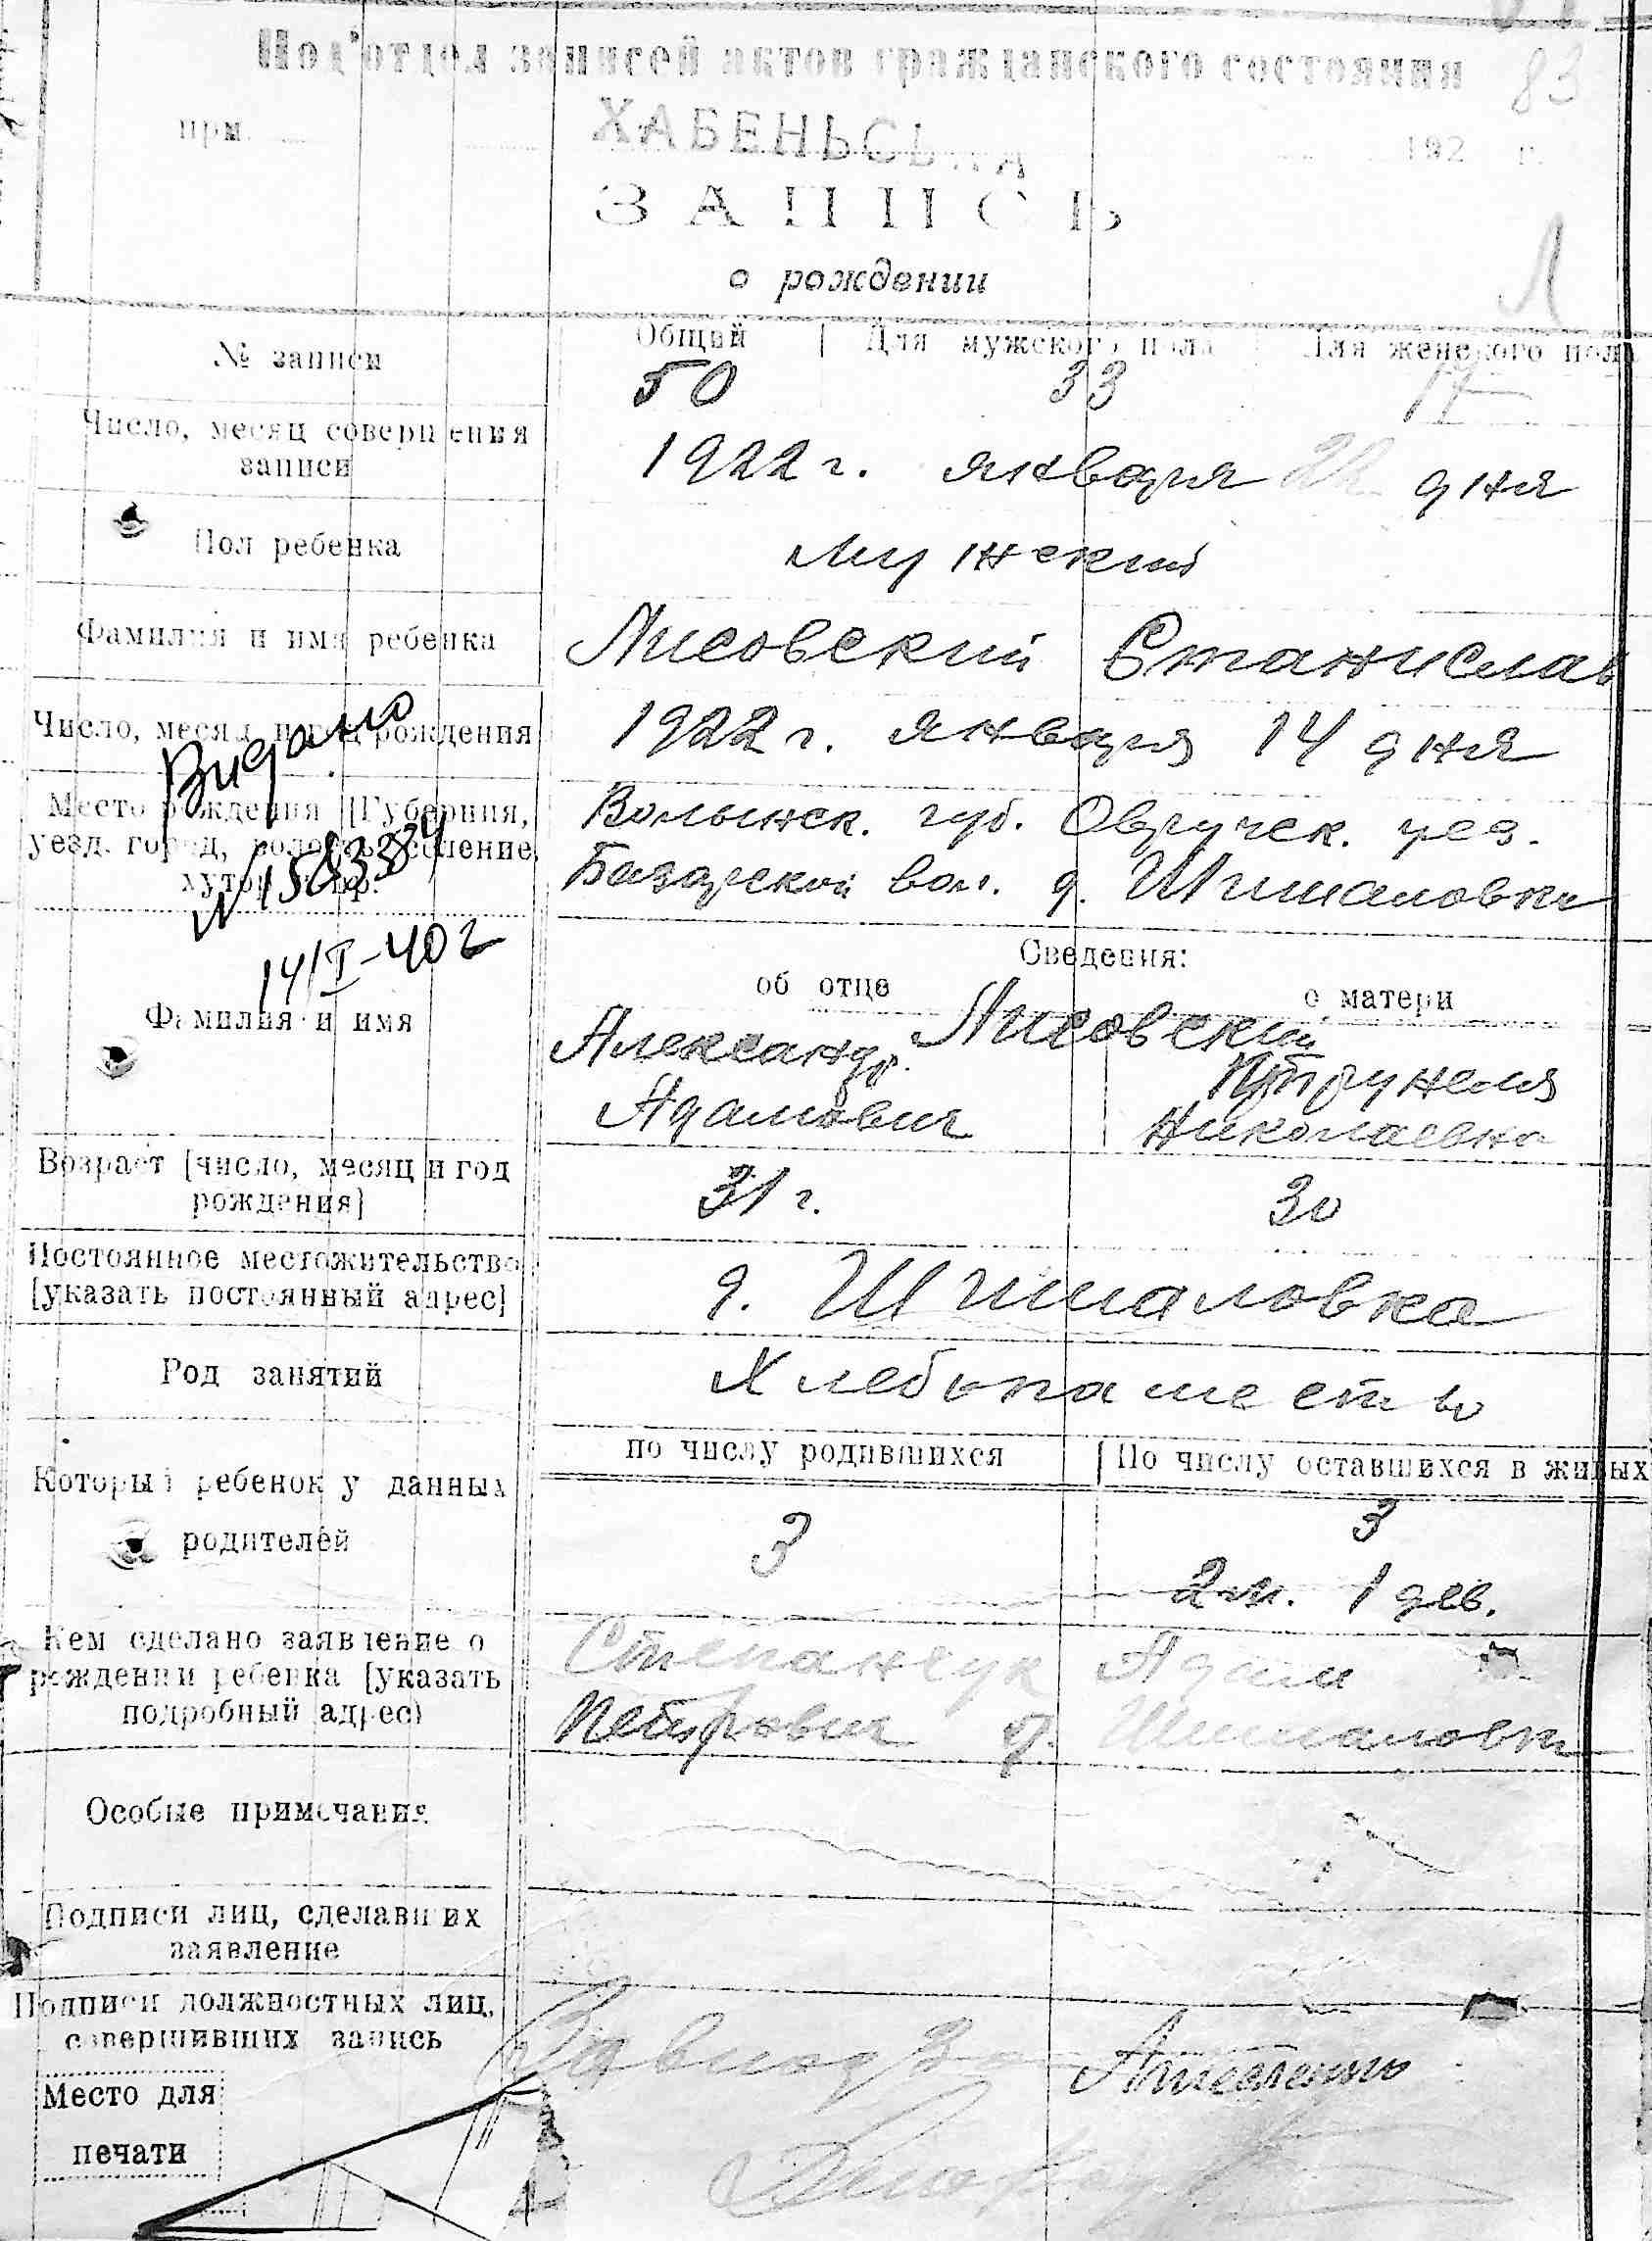 83
Под'отдел записей актов гражданского состояния
при 192 г.
ЗАПИСЬ
о рождении
Л
№ записи
Общий Для мужского пола Для женского пола
50 33 17
Число, месяц совершения
записи
1922 г. января 22 дня
Пол ребенка
мужский
Фамилия и имя ребенка
Лисовский Станислав
Число, месяц и год рождения
1922 г. января 14 дня
Видано
Место рождения [Губерния,
уезд, город, волость, селение,
хутор и пр.
Волынск. губ. Овручск. уез.
Базарской вол. д. Шишаловка
14/I-40 г
Сведения:
об отце о матери
Фамилия и имя
Лисовский
Александр
Адамович Николаевна
Возраст [число, месяц и год
рождения]
31 г. 30
Постоянное местожительство
[указать постоянный адрес]
д. Шишаловка
Род занятий
Хлебопашество
Который ребенок у данных
родителей
по числу родившихся По числу оставшихся в живых
3 3
2 м. 1 дев.
Кем сделано заявление о
рождении ребенка [указать
подробный адрес)
Степанчук Адам
Петрович д.
Особые примечания
Подписи лиц, сделавших
заявление
Подписи должностных лиц,
совершивших запись
Место для
печати